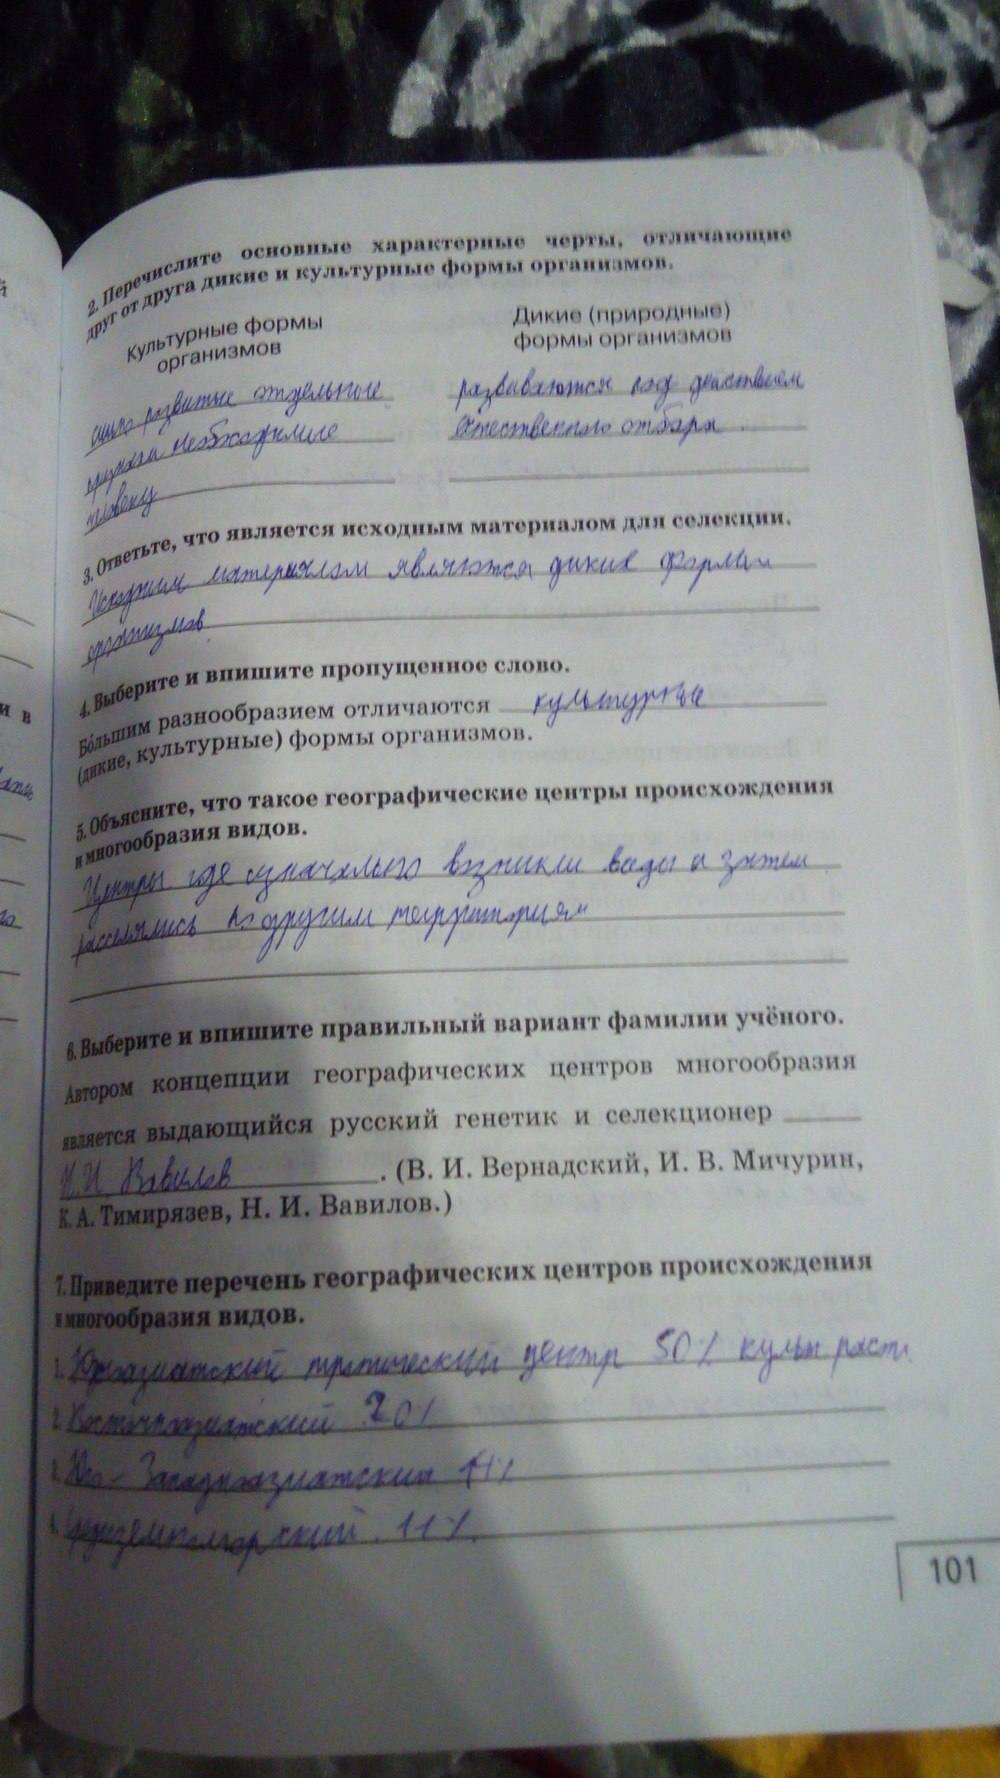 2. Перечислите основные характерные черты, отличающие
друг от друга дикие и культурные формы организмов.
Культурные формы
организмов
Дикие (природные)
формы организмов
сильно развитые отдельные
признаки необходимые
человеку
развиваются под действием
естественного отбора.
3. Ответьте, что является исходным материалом для селекции.
Исходным материалом являются дикие формы
организмов
4. Выберите и впишите пропущенное слово.
Бо́льшим разнообразием отличаются культурные
(дикие, культурные) формы организмов.
5. Объясните, что такое географические центры происхождения
и многообразия видов.
Центры где изначально возникли виды и затем
расселялись по другим территориям
6. Выберите и впишите правильный вариант фамилии учёного.
Автором концепции географических центров многообразия
является выдающийся русский генетик и селекционер
Н.И. Вавилов. (В. И. Вернадский, И. В. Мичурин,
К. А. Тимирязев, Н. И. Вавилов.)
7. Приведите перечень географических центров происхождения
и многообразия видов.
1. Южноазиатский тропический центр 50% культ раст.
2. Восточноазиатский 20%
3. Юго-Западноазиатский 14%
4. Средиземноморский. 11%.
101